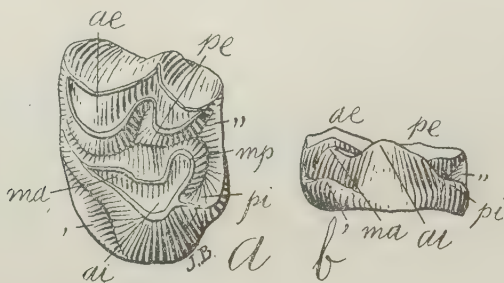 ae
pe
"
mp
ma
pi
'
ai
J.B.
a
ae
pe
"
pi
'
ma
ai
b